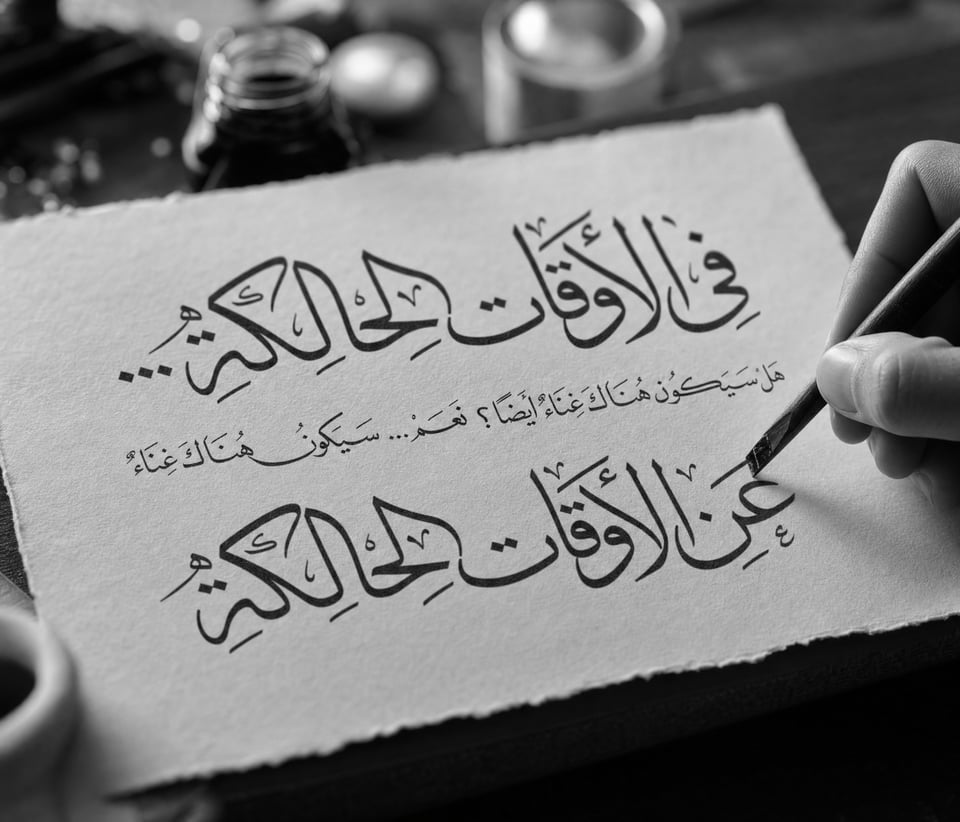 في الأوقات الحالكةِ...
هَلْ سَيَكُون هُنَاكَ غِنَاءٌ أَيضًا؟ نَعَمْ... سَيَكُونُ هُنَاكَ غِنَاءٌ
عَنِ الأوقات الحالكةِ